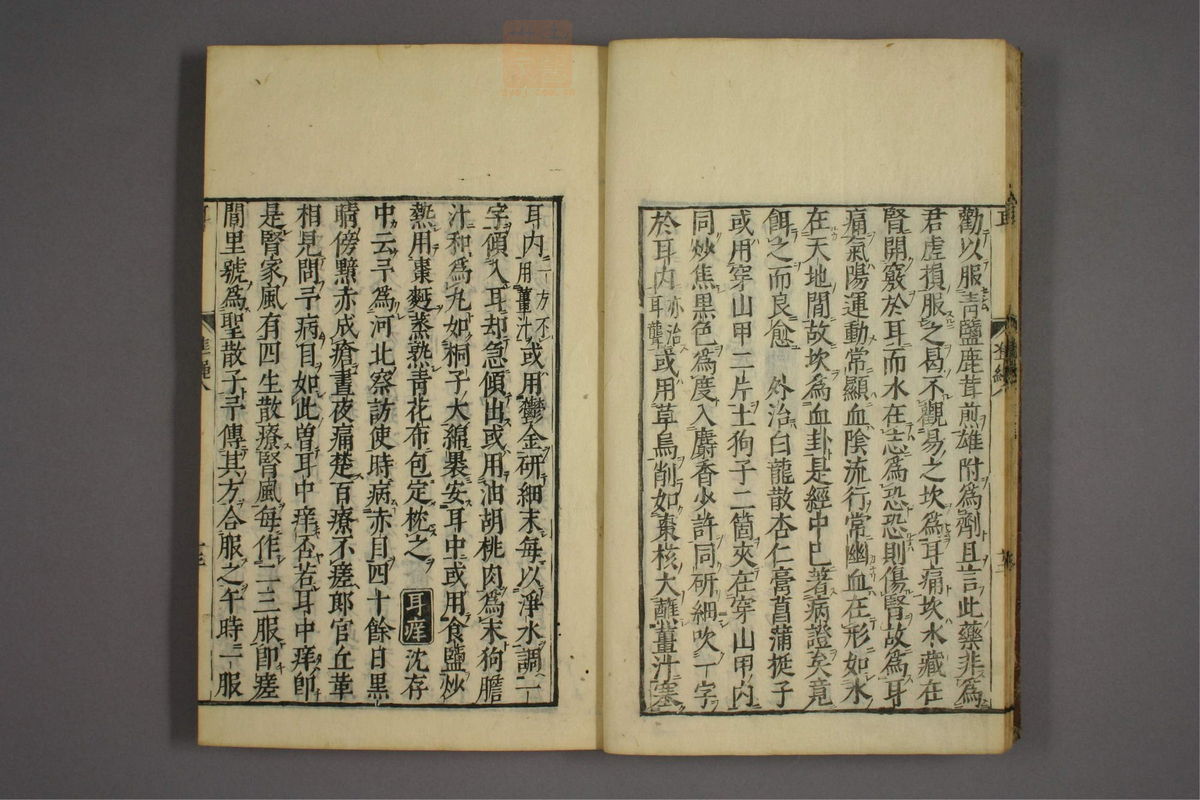 勸以服青鹽鹿茸煎雄附爲劑且言此藥非爲
君虛損服之曷不觀易之坎爲耳痛坎水藏在
腎開竅於耳而水在志爲恐恐則傷腎故爲耳
痛氣陽運動常顯血陰流行常幽血在形如水
在天地間故坎爲血卦是經中已著病證矣竟
餌之而良愈　外治白龍散杏仁膏菖蒲挺子
或用穿山甲二片土狗子二箇夾在穿山甲内
同炒焦黑色爲度入麝香少許同研細吹一字
於耳内亦治耳聾或用草烏削如棗核大蘸薑汁塞
耳内一方不用薑汁或用鬱金研細末每以淨水調一
字傾入耳却急傾出或用油胡桃肉爲末狗膽
汁和爲丸如桐子大綿褁安耳中或用食鹽炒
熱用棗麫蒸熟靑花布包定枕之　耳痒　沈存
中云予爲河北察訪使時病赤目四十餘日黑
睛傍黯赤成瘡晝夜痛楚百療不瘥郎官丘革
相見問予病目如此曾耳中痒否若耳中痒卽
是腎家風有四生散療腎風每作二三服卽瘥
閭里號爲聖散子予傳其方合服之午時一服